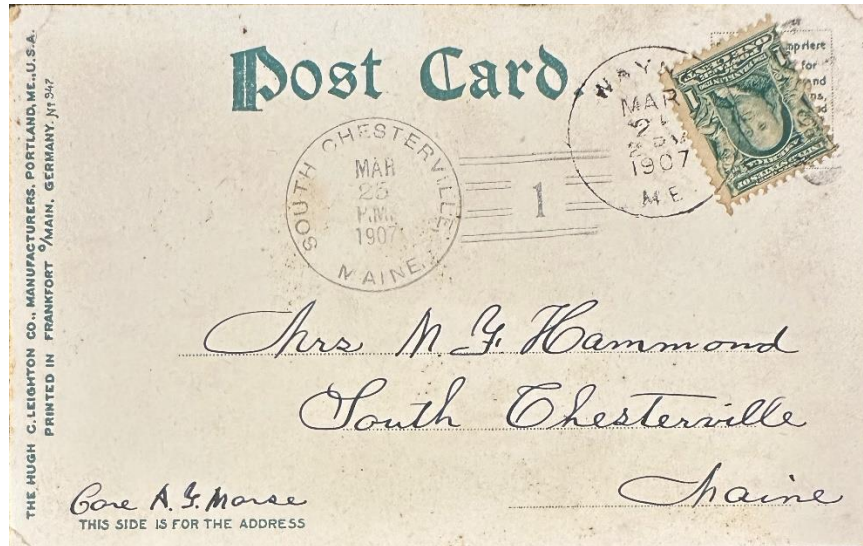 THE HUGH C. LEIGHTON CO., MANUFACTURERS, PORTLAND, ME., U.S.A.
PRINTED IN FRANKFORT O/MAIN, GERMANY. Nº 947
Post Card.
for
SOUTH CHESTERVILLE
MAR
25
P.M.
1907
MAINE
1
MAR
1907
ME
1
UNITED STATES OF
AMERICA
1
Mrs M. F. Hammond
South Chesterville
Maine
Care A. F. Morse
THIS SIDE IS FOR THE ADDRESS